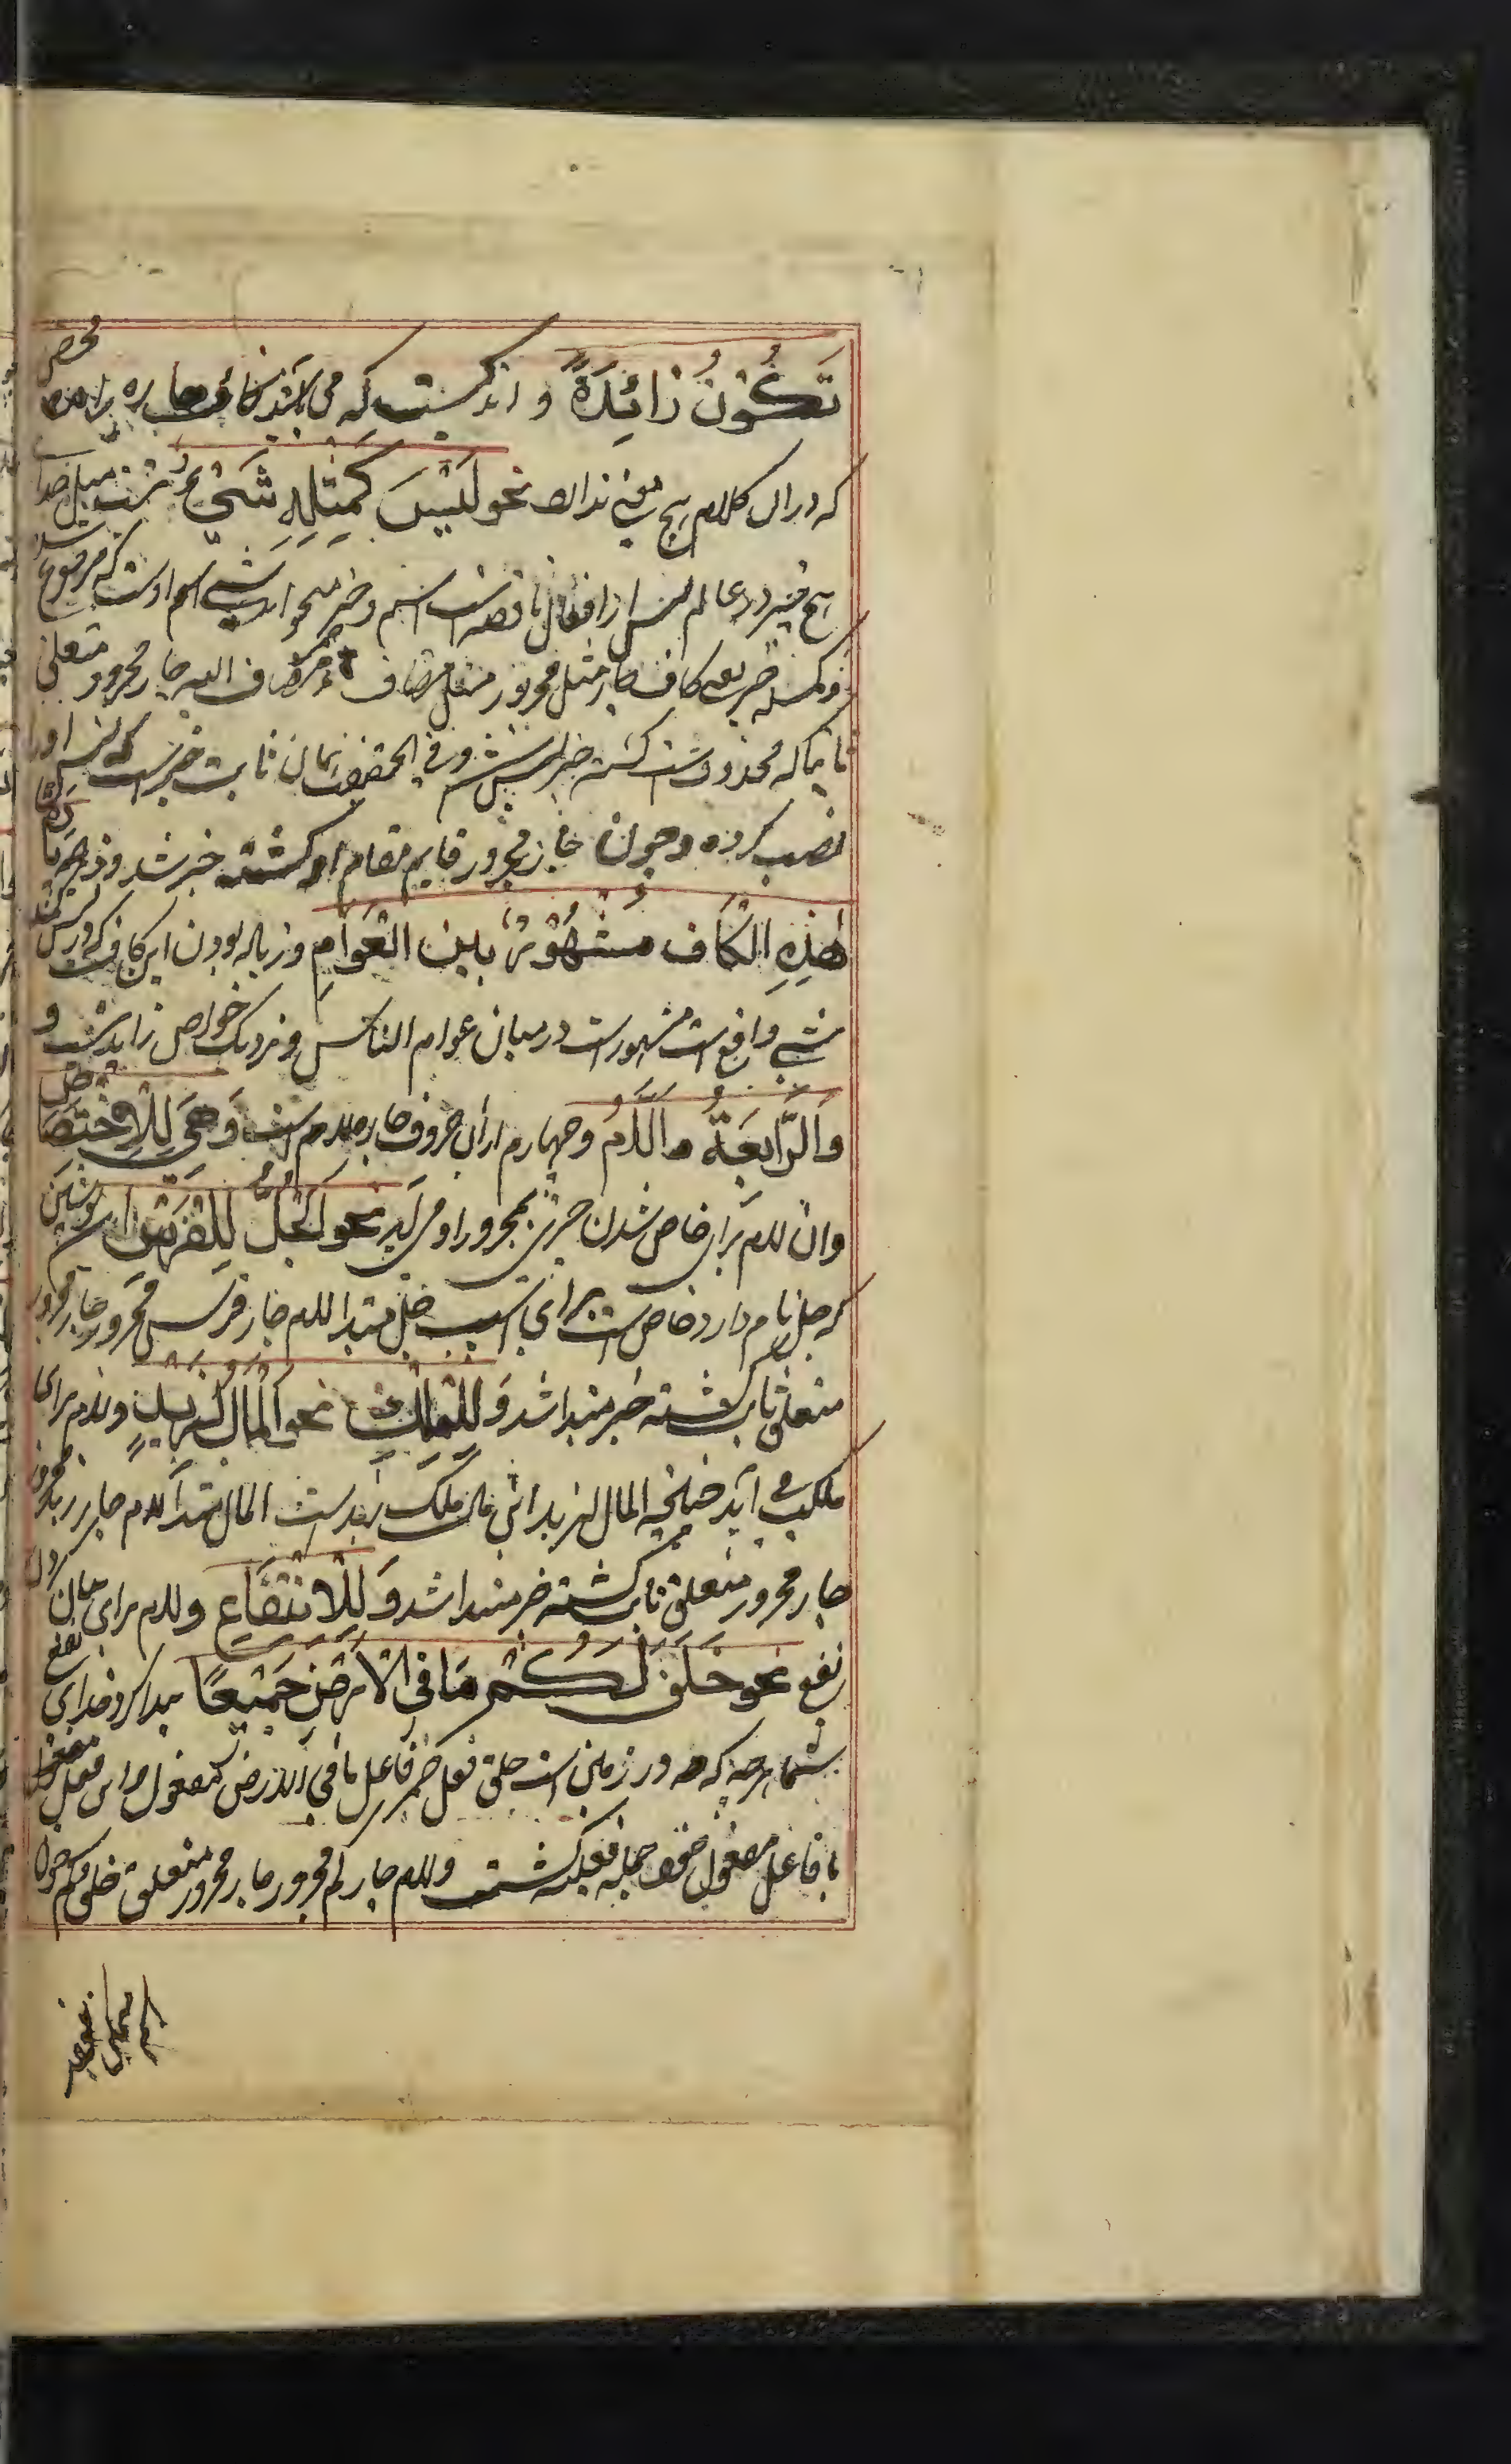 تَكُوْنُ زَائِدَةً و اندكيست كه مى باشد كاف جاره زايده محض
كه دران كلام هيچ معنى ندارد نحو لَيْسَ كَمِثْلِهٖ شَيْءٌ نيست مثل خداے
هيچ چيز در عالم ليس از افعال ناقصه است اسم و خبر ميخواهد شى اسم اوست كه مرفوع شد
و كمثله خبر كاف جار مثل مجرور مثل مضاف ه مضاف اليه جار مجرور متعلق
ثابتا كه محذوفست گشته خبر ليس شد و فى الحقيقت همان ثابت خبر است كه ليس اورا
نصب كرده و چون جار مجرور قايم مقام او گشته خبر شد وَزِيَادَةُ
هٰذِهِ الْكَاف مَشْهُوْرٌ بَيْنَ الْعَوَامِ و زياده بودن اين كاف كه در كمثله
شے واقع است مشهور است در ميان عوام الناس و نزديك خواص زايد نيست و
وَالرَّابِعَةُ اَللَّامُ و چهارم ازان حروف جاره لام است وَهِيَ لِلْاِخْتِصَاصِ
وان لام براى خاص شدن چيزى بمجرور او مى آيد نحو اَلْجُلُّ لِلْفَرَسِ اين پوشش
كه جل نام دارد خاص است براى اسپ جل مبتدا لام جار فرس مجرور جار مجرور
متعلق ثابت گشته خبر مبتدا شد وَ لِلتَّمْلِيْكِ نحو اَلْمَالُ لِزَيْدٍ و لام براى
ملكيت مے آيد چنانچه المال لزيد اين مال ملك زيد است المال مبتدا لام جار زيد مجرور
جار مجرور متعلق ثابت گشته خبر مبتدا شد وَ لِلْاِنْتِفَاعِ و لام براى بيان كردن
نفع نحو خَلَقَ لَكُمْ مَا فِي الْاَرْضِ جَمِيْعًا پيدا كرد خداى نفع
شما هرچه كه در زمين است خلق فعل ضمير فاعل ما فى الارض مفعول او اين فعل
با فاعل مفعول خود جمله فعليه گشت و لام جار كم مجرور جار مجرور متعلق خلق